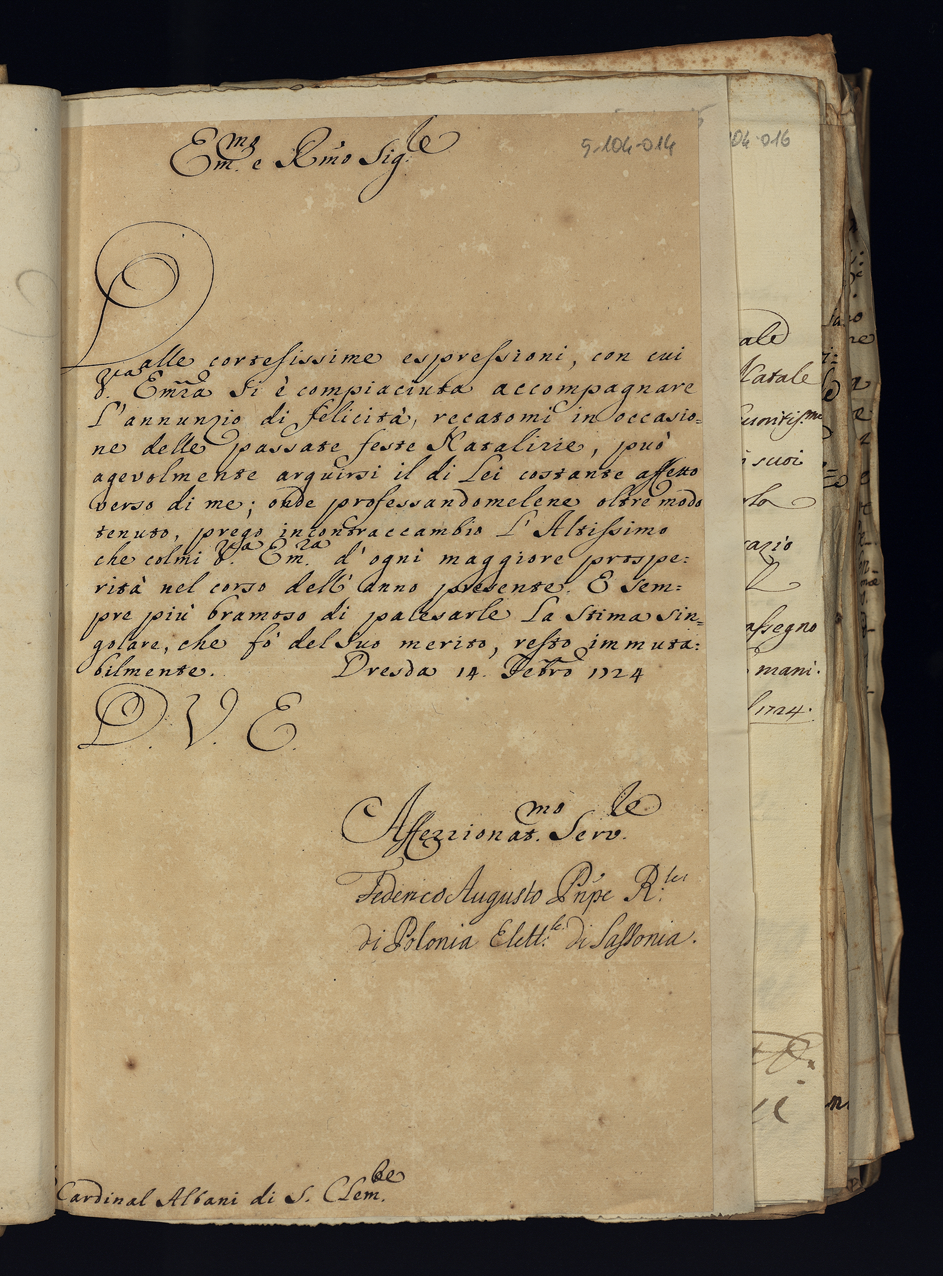 Em.mo e Rmo Sig.le
9-104-014
104-016
Dalle cortesissime espressioni, con cui
V.ra Emza si è compiaciuta accompagnare
l'annunzio di felicità, recatomi in occasio=
ne delle passate feste Natalizie, può
agevolmente arguirsi il di Lei costante affetto
verso di me; onde professandomelene oltre modo
tenuto, prego incontraccambio L'Altissimo
che colmi V.ra Em.za d'ogni maggiore prospe:
rità nel corso dell'anno presente. E sem=
pre più bramoso di palesarle la stima sin=
golare, che fò del suo merito, resto immuta:
bilmente. Dresda 14. Febro 1724
D. V. E.
Affezzionat.mo Serv.le
Federico Augusto Pnpe R.le
di Polonia Elett.le di Sassonia.
Cardinal Albani di S. Clem.te
ale
Natale
i suoi
razio
assegno
mani.
1724.